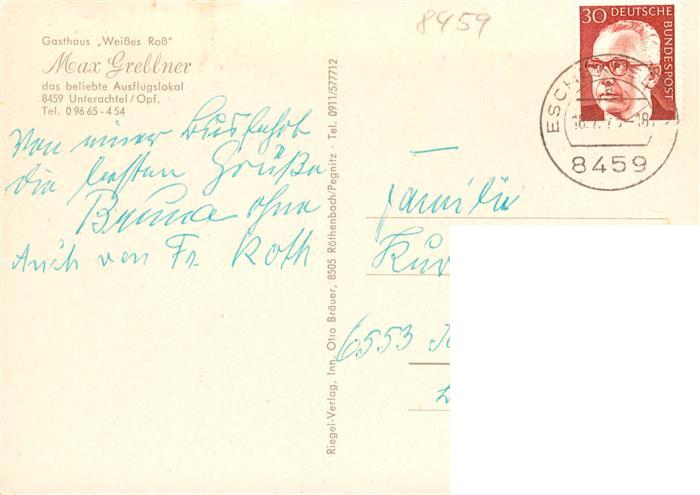 8459
Gasthaus „Weißes Roß“
Max Grellner
das beliebte Ausflugslokal
8459 Unterachtel / Opf.
Tel. 0 96 65 - 4 54
Von einer Busfahrt
die besten Grüße
ohne
Auch von Fr. Roth
Riegel-Verlag, Inn. Otto Bräuer, 8505 Röthenbach/Pegnitz · Tel. 0911/577712
30 DEUTSCHE
BUNDESPOST
ESCH
8459
Familie
6553